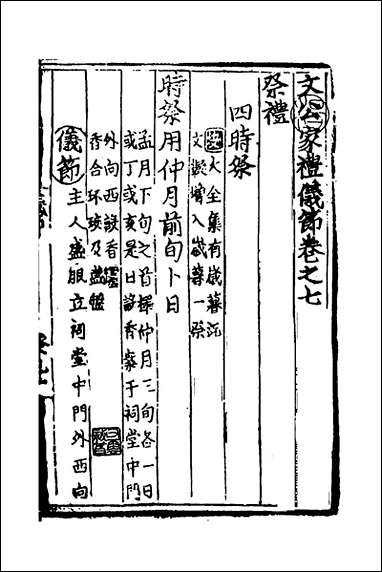 文公家禮儀節卷之七
祭禮
四時祭
大全集有歲暮祀
文擬增入歲暮一祭
時祭用仲月前旬卜日
孟月下旬之首擇仲月三旬各一日
或丁或亥是日設香案于祠堂中門
外向西設香爐
香合环珓及盞盤
儀節
主人盛服立祠堂中門外西向